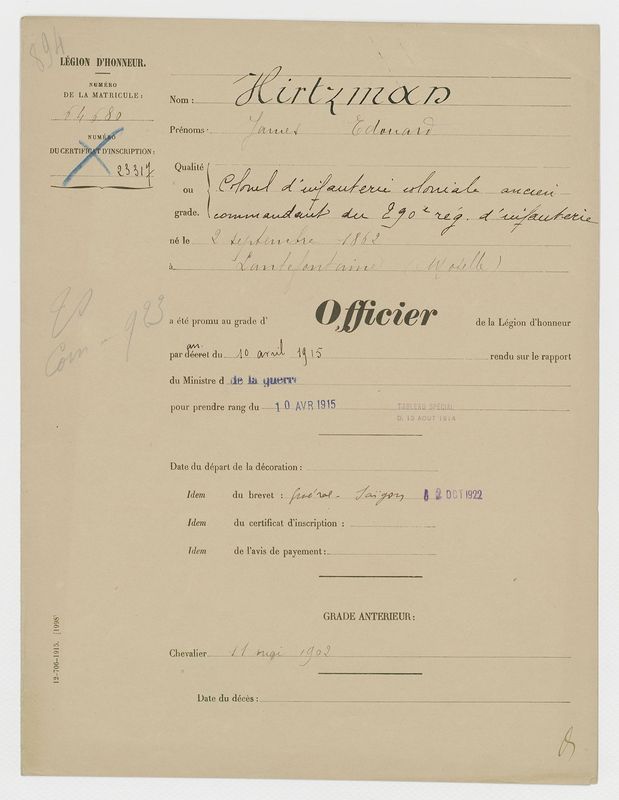 894
LÉGION D'HONNEUR.
NUMÉRO
DE LA MATRICULE :
64680
NUMÉRO
DU CERTIFICAT D'INSCRIPTION :
23317
Nom : Hirtzman
Prénoms : James Edouard
Qualité
ou
grade.
Colonel d'infanterie coloniale ancien
commandant du 290e rég. d'infanterie
né le 2 septembre 1862
à Lantefontaine (Moselle)
Com - 923
a été promu au grade d' Officier de la Légion d'honneur
par décret du 10 avril 1915 rendu sur le rapport
du Ministre d de la guerre
pour prendre rang du 10 AVR 1915
TABLEAU SPÉCIAL
D. 13 AOUT 1914
Date du départ de la décoration :
Idem du brevet : général - Saigon 12 OCT 1922
Idem du certificat d'inscription :
Idem de l'avis de payement :
GRADE ANTERIEUR :
Chevalier 11 mai 1902
Date du décès :
12-706-1915. [1998]